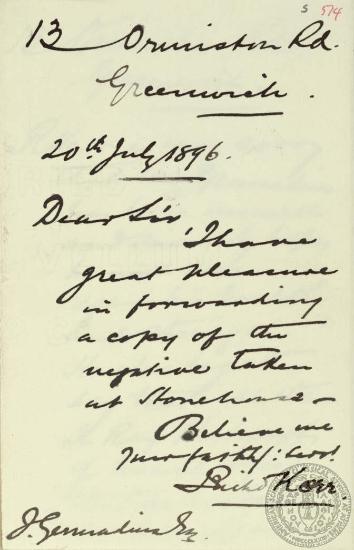 S 574
13 Ormiston Rd.
Greenwich.
20th July 1896.
Dear Sir
I have
great pleasure
in forwarding
a copy of the
negative taken
at Stonehouse –
Believe me
Your faithf: servt
Richd Kerr
J. Gennadius Esq